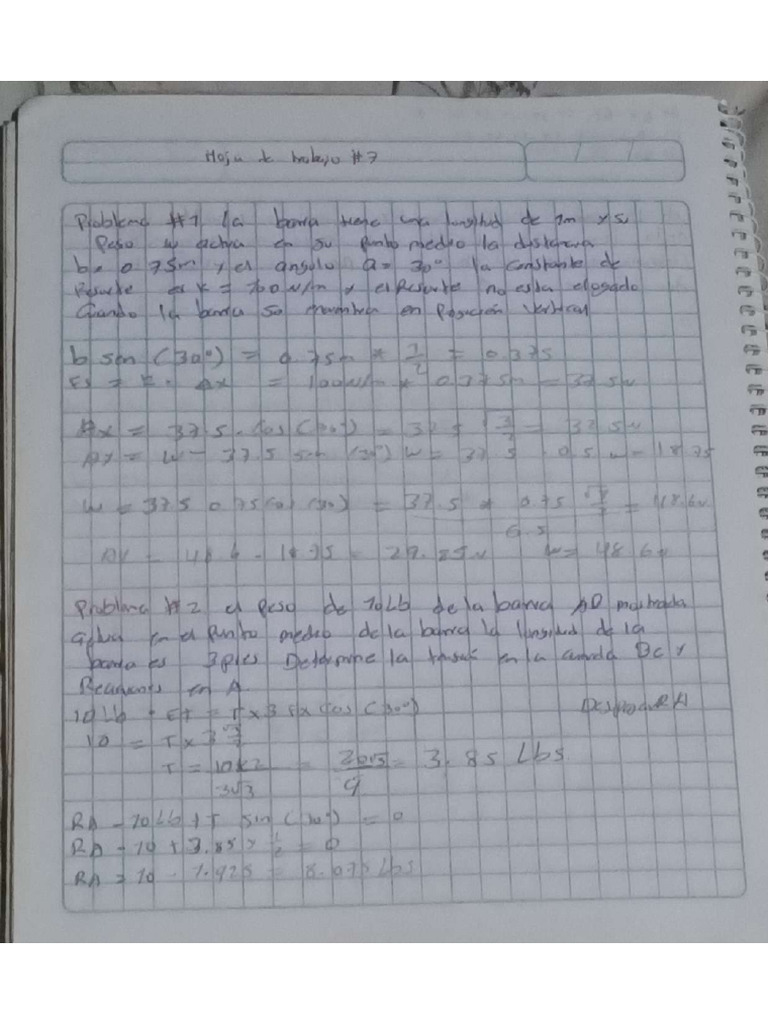 Hoja de trabajo #7
Problema #1 la barra tiene una longitud de 1m y su
Peso w actua en su punto medio la distancia
b= 0.75m y el angulo a= 30° la constante de
Resorte es K= 100 N/m y el Resorte no esta elogado
Cuando la barra se en Posición vertical
b sen (30°) = 0.75m * 1/2 = 0.375
Fs = K. Δx = 100N/m * 0.375m = 37.5N
Ax = 37.5 . Cos (30°) = 37.5 = 32.5N
Ay = W - 37.5 sen (30°) W = 37.5 . 0.5 w - 18.75
W = 37.5 0.75 cos (30°) = 37.5 * 0.75 √3/2 = 48.6N
0.5
AY = 48.6 - 18.75 = 29.85N W= 48.6N
Problema #2 el peso de 10Lb de la barra AD mostrada
actua en el punto medio de la barra la longitud de la
barra es 3pies Determine la en la cuerda BC y
Reacciones en A
10 Lb = T x 3 x Cos (30°)
10 = T x 3 √3/2
T = 10x2/3√3 = 20√3/9 = 3.85 Lbs
RA - 10Lb + T sin (30°) = 0
RA - 10 + 3.85 x 1/2 = 0
RA = 10 - 1.925 = 8.075 Lbs